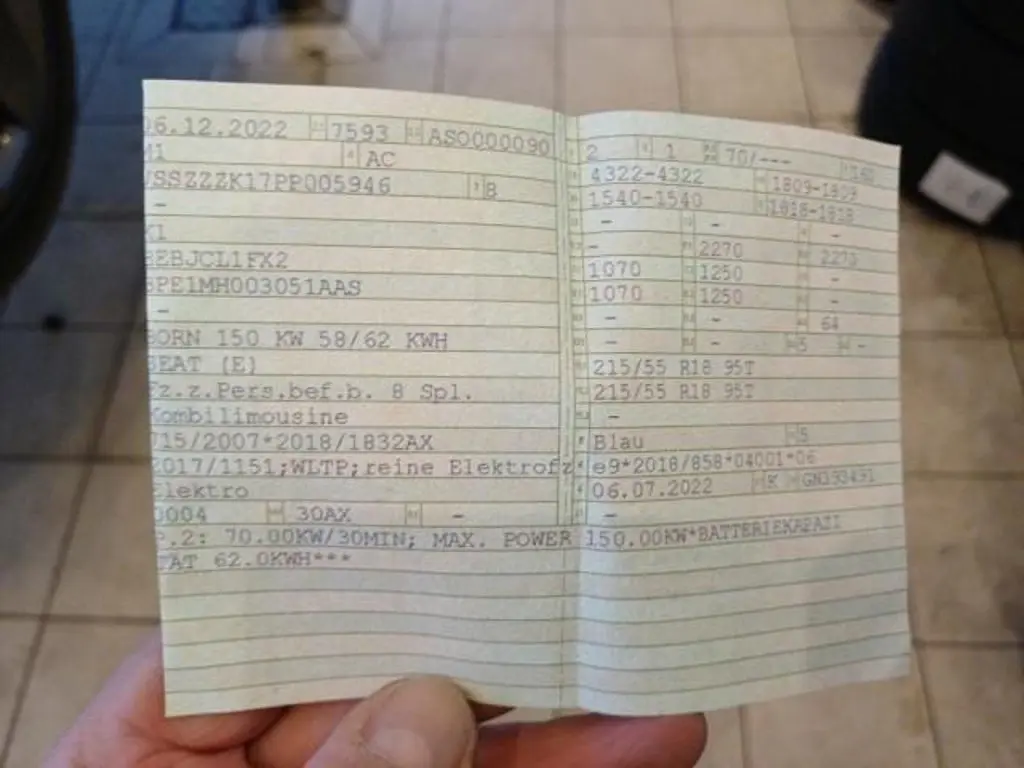 6.12.2022 7593 ASO000090
M1 AC
VSSZZZK17PP005946 8
-
K1
BEBJCL1FX2
SPE1MH003051AAS
-
BORN 150 KW 58/62 KWH
SEAT (E)
Fz.z.Pers.bef.b. 8 Spl.
Kombilimousine
715/2007*2018/1832AX
2017/1151;WLTP;reine Elektrofz
Elektro
0004 30AX -
P.2: 70.00KW/30MIN; MAX. POWER 150.00KW*BATTERIEKAPAZI
TÄT 62.0KWH***
2 1 70/--- 160
4322-4322 1809-1809
1540-1540 1918-1918
- - -
- 2270 2270
1070 1250 -
1070 1250 -
- - 64
- - 5 -
215/55 R18 95T
215/55 R18 95T
-
Blau 5
e9*2018/858*04001*06
06.07.2022 K
-